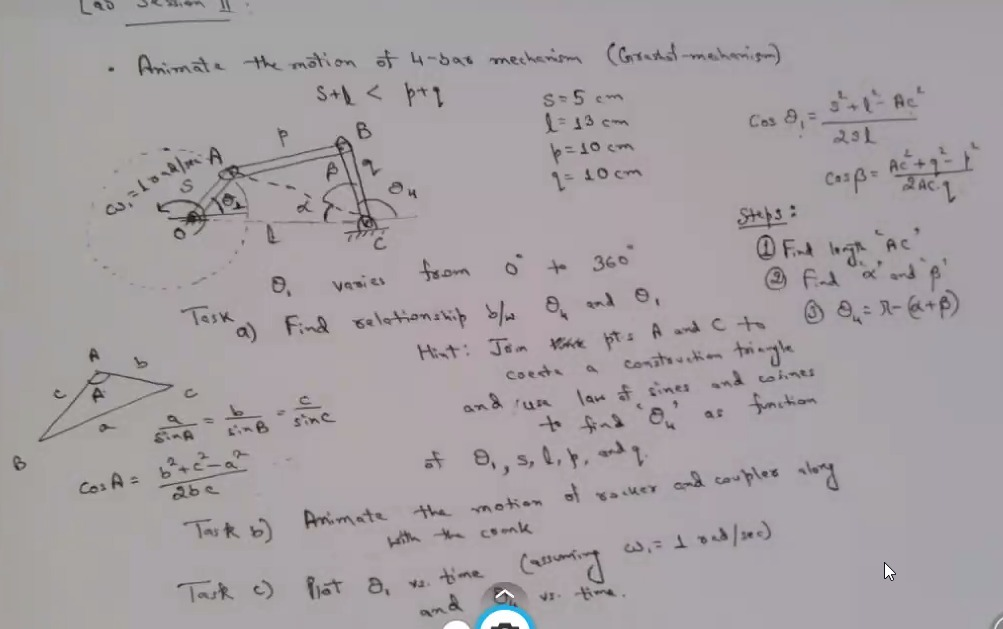 Lab Session II
• Animate the motion of 4-bar mechanism (Grashof-mechanism)
S+l < p+q
s = 5 cm
l = 13 cm
p = 10 cm
q = 10 cm
Cos θ₁ = s²+l²-AC² / 2sl
cosβ = AC²+q²-p² / 2AC.q
ω₁=1 rad/
S
A
p
B
q
β
α
θ₁
θ₄
O
l
C
Steps:
① Find length "AC"
② Find 'α' and 'β'
③ θ₄ = π-(α+β)
θ₁ varies from 0° to 360°
Task a) Find relationship b/w θ₄ and θ₁
Hint: Join pts A and C to
create a construction triangle
and use law of sines and cosines
to find 'θ₄' as function
of θ₁, s, l, p, and q.
A
b
c
A
C
a
B
a/sinA = b/sinB = c/sinC
cosA = b²+c²-a² / 2bc
Task b) Animate the motion of rocker and coupler along
with the crank
Task c) Plot θ₁ vs. time (assuming ω₁ = 1 rad/sec)
and θ₄ vs. time.